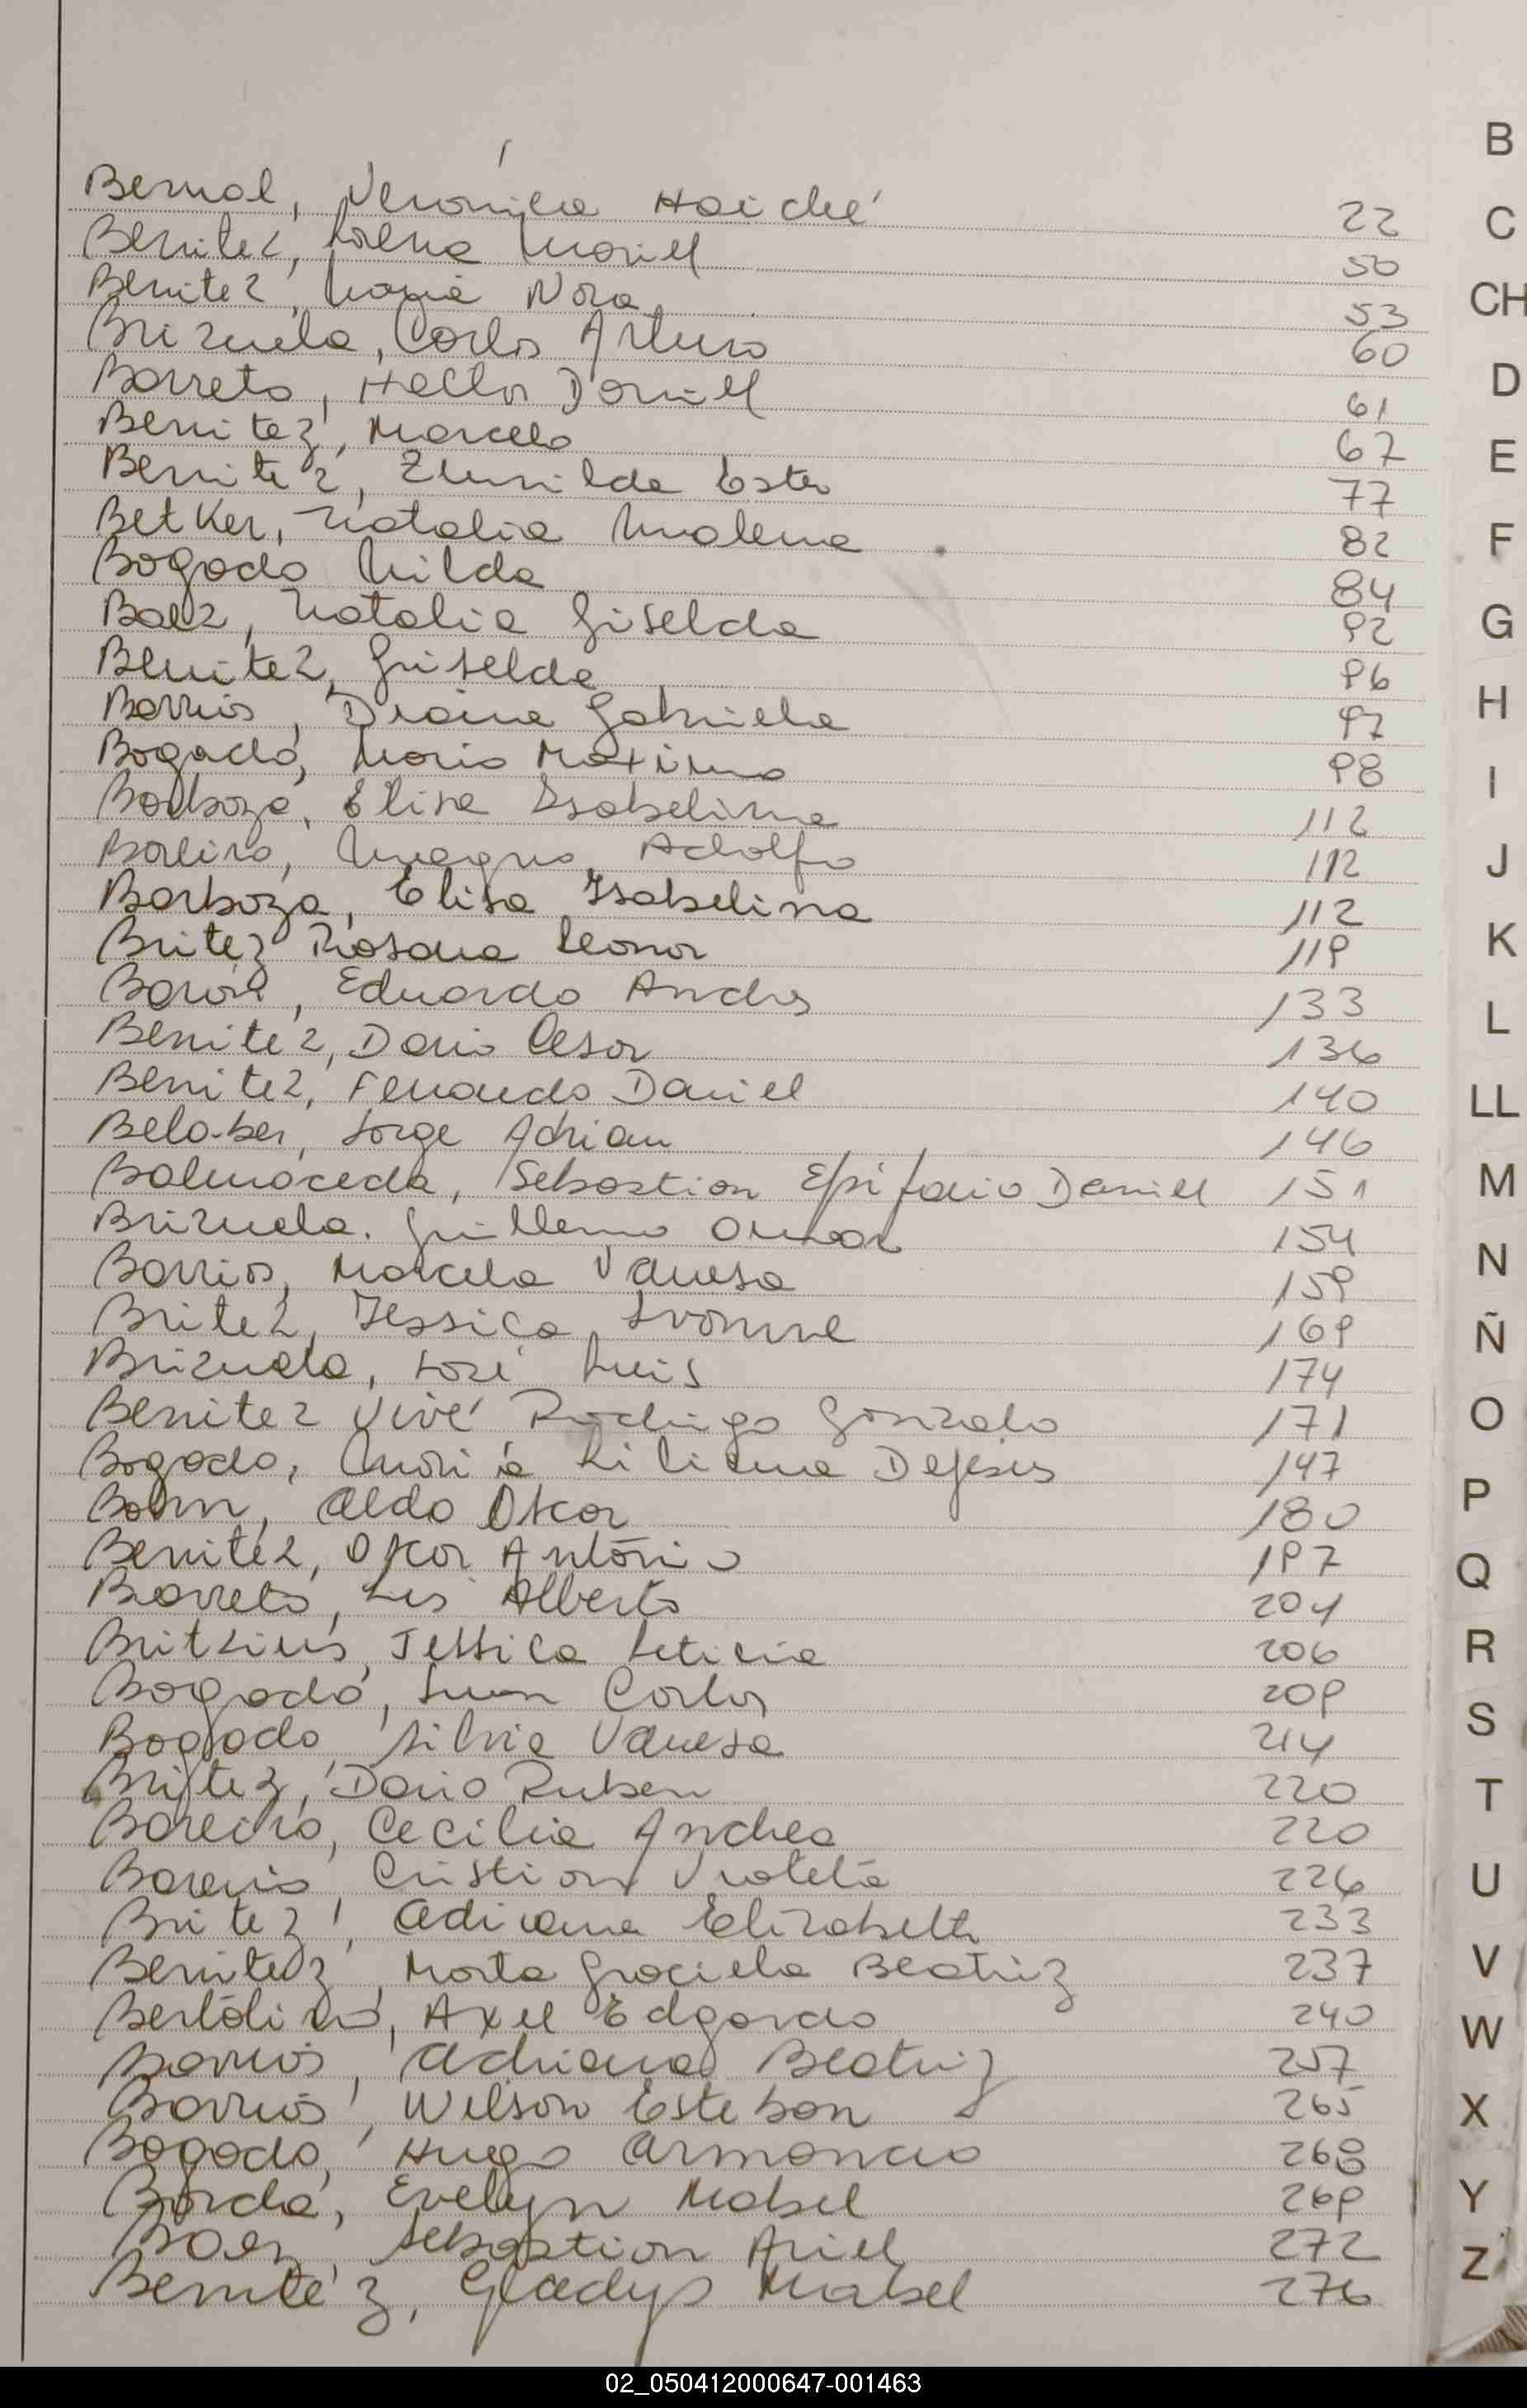 Bernal, Verónica Haiché 22
Benitez, Lorena Mariell 50
Benitez, Maria Nora 53
Brizuela, Carlos Arturo 60
Barreto, Hector Daniel 61
Benitez, Marcelo 67
Benitez, Zunilda Ester 77
Betker, Natalia Malena 82
Bogado Nilda 84
Baez, Natalia Giselda 92
Benitez, Griselda 96
Barrios, Diana Gabriela 97
Bogado, Mario Maximo 98
Barboza, Elisa Isabelina 112
Adolfo 112
Barboza, Elisa Isabelina 112
Britez Rosana Leonor 119
Eduardo Andres 133
Benitez, Dario Cesar 136
Benitez, Fernando Daniel 140
Jorge Adrian 146
Balmaceda, Sebastian Epifanio Daniel 151
Brizuela. Guillermo Omar 154
Barrios, Marcela Vanesa 159
Britez, Jessica Ivonne 169
Brizuela, José Luis 174
Benitez Vivé Rodrigo Gonzalo 171
Bogado, Maria Liliana Dejesus 147
Aldo Oscar 180
Benitez, Oscar Antonio 197
Barreto, Luis Alberto 204
Jessica Leticia 206
Bogado, Juan Carlos 209
Bogado, Silvia Vanesa 214
Britez, Dario Ruben 220
Bareiro, Cecilia Andrea 220
Bareiro Cristian Violeta 226
Britez, Adriana Elizabeth 233
Benitez, Marta Graciela Beatriz 237
Bertolino, Axel Edgardo 240
Barrios, Adriana Beatriz 257
Barrios, Wilson Esteban 265
Bogado, Hugo Armando 268
Borda, Evelyn Mabel 269
Baez, Sebastian Ariel 272
Benitez, Gladys Mabel 276
B
C
CH
D
E
F
G
H
I
J
K
L
LL
M
N
Ñ
O
P
Q
R
S
T
U
V
W
X
Y
Z
02_050412000647-001463